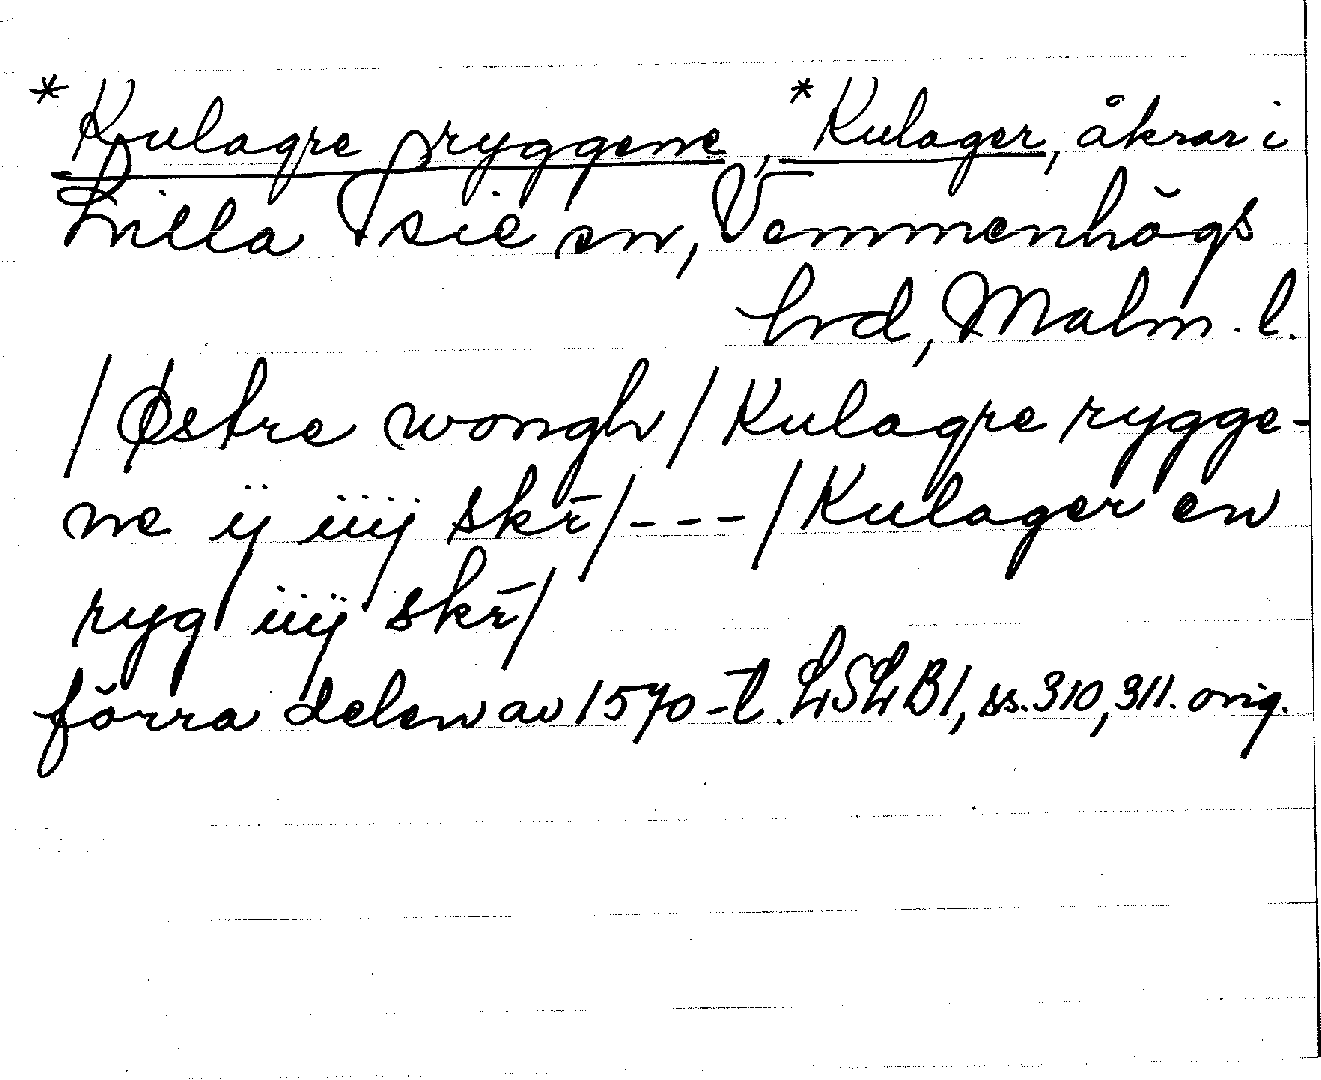 *Kulagre ryggene, *Kulager, åkrar i
Lilla Isie sn, Vemmenhögs
hrd, Malm. l.
/Østre wongh/Kulagre rygge-
ne ij iiij skr̄/---/Kulager en
ryg iiij skr̄/
förra delen av 1570-t. LSLB1, ss. 310, 311. orig.